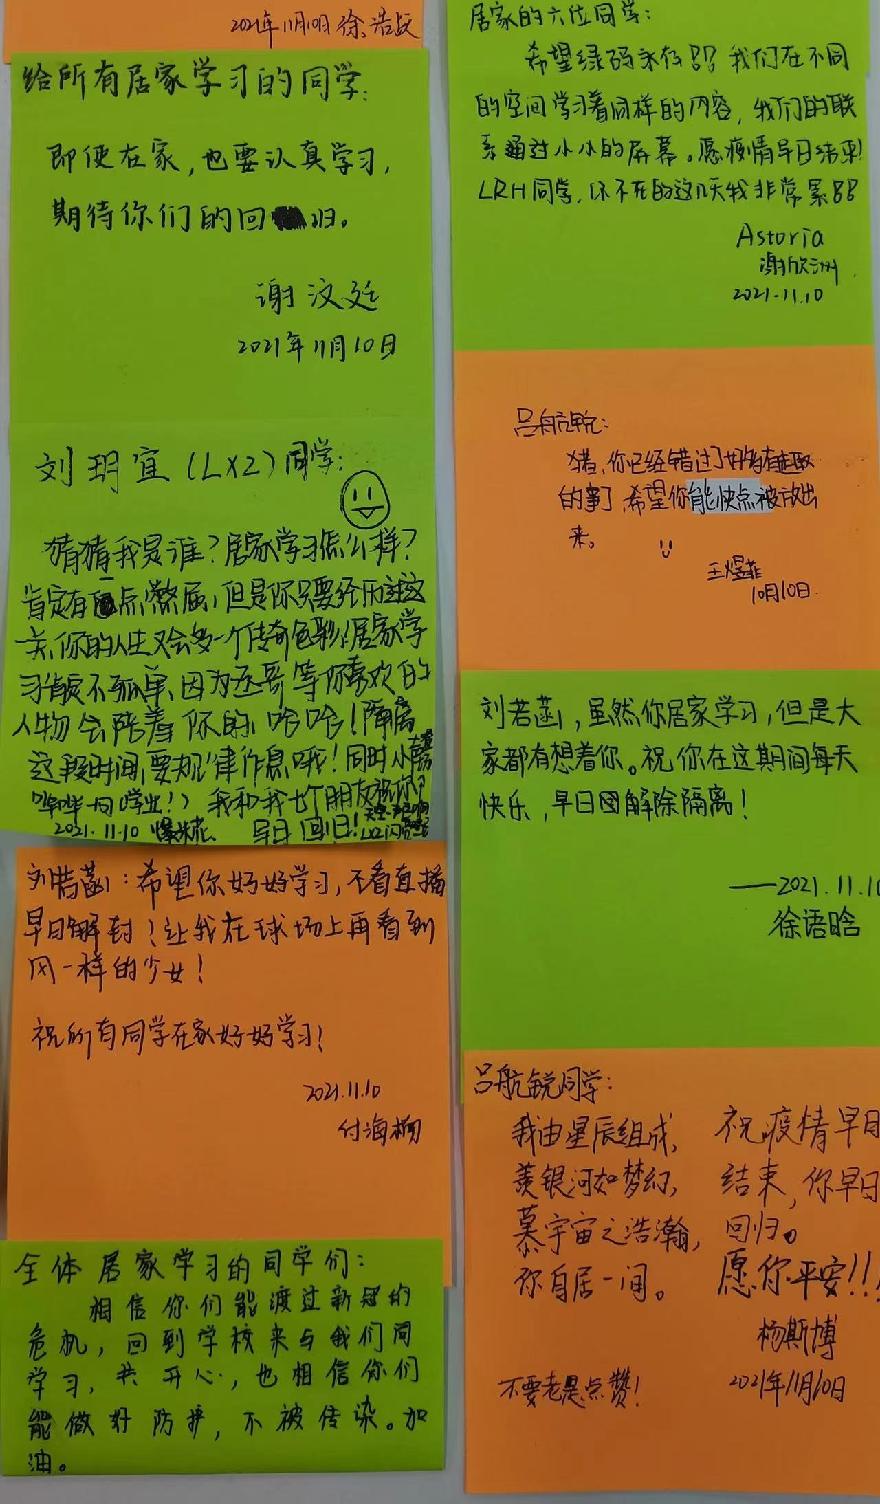 2021年11月10日 徐浩
给所有居家学习的同学:
即使在家,也要认真学习,
期待你们的回归。
谢汶廷
2021年11月10日
刘玥宜(LXZ)同学:
猜猜我是谁?居家学习怎么样?
肯定有点憋屈,但是你只要经历过这
关,你的人生又会多一个传奇色彩!居家学
习肯定不孤单,因为丞哥等你喜欢的
人物会陪着你的,哈哈!隔离
这段时间,要规律作息哦!同时小
我和我七个朋友祝你
2021.11.10 早日回归!
刘若菡:希望你好好学习,不看直播
早日解封!让我在球场上再看到
风一样的少女!
祝所有同学在家好好学习!
2021.11.10
付海杨
全体居家学习的同学们:
相信你们能渡过新冠的
危机,回到学校来与我们同
学习,共开心,也相信你们
能做好防护,不被传染。加
油。
居家的六位同学:
希望绿码永存!!我们在不同
的空间学习着同样的内容,我们的联
系通过小小的屏幕。愿疫情早日结束!
LRH同学,你不在的这几天我非常累!!
Astoria
谢欣洲
2021.11.10
吕航锐:
猪,你已经错过了好多有趣
的事了 希望你能快点被放出
来。
王煜菲
10月10日
刘若菡,虽然你居家学习,但是大
家都有想着你。祝你在这期间每天
快乐,早日解除隔离!
——2021.11.10
徐语晗
吕航锐同学:
我由星辰组成,
羡银河如梦幻,
慕宇宙之浩瀚,
你自居一间。
不要老是点赞!
祝疫情早日
结束,你早日
回归。
愿你平安!!!
杨斯博
2021年11月10日